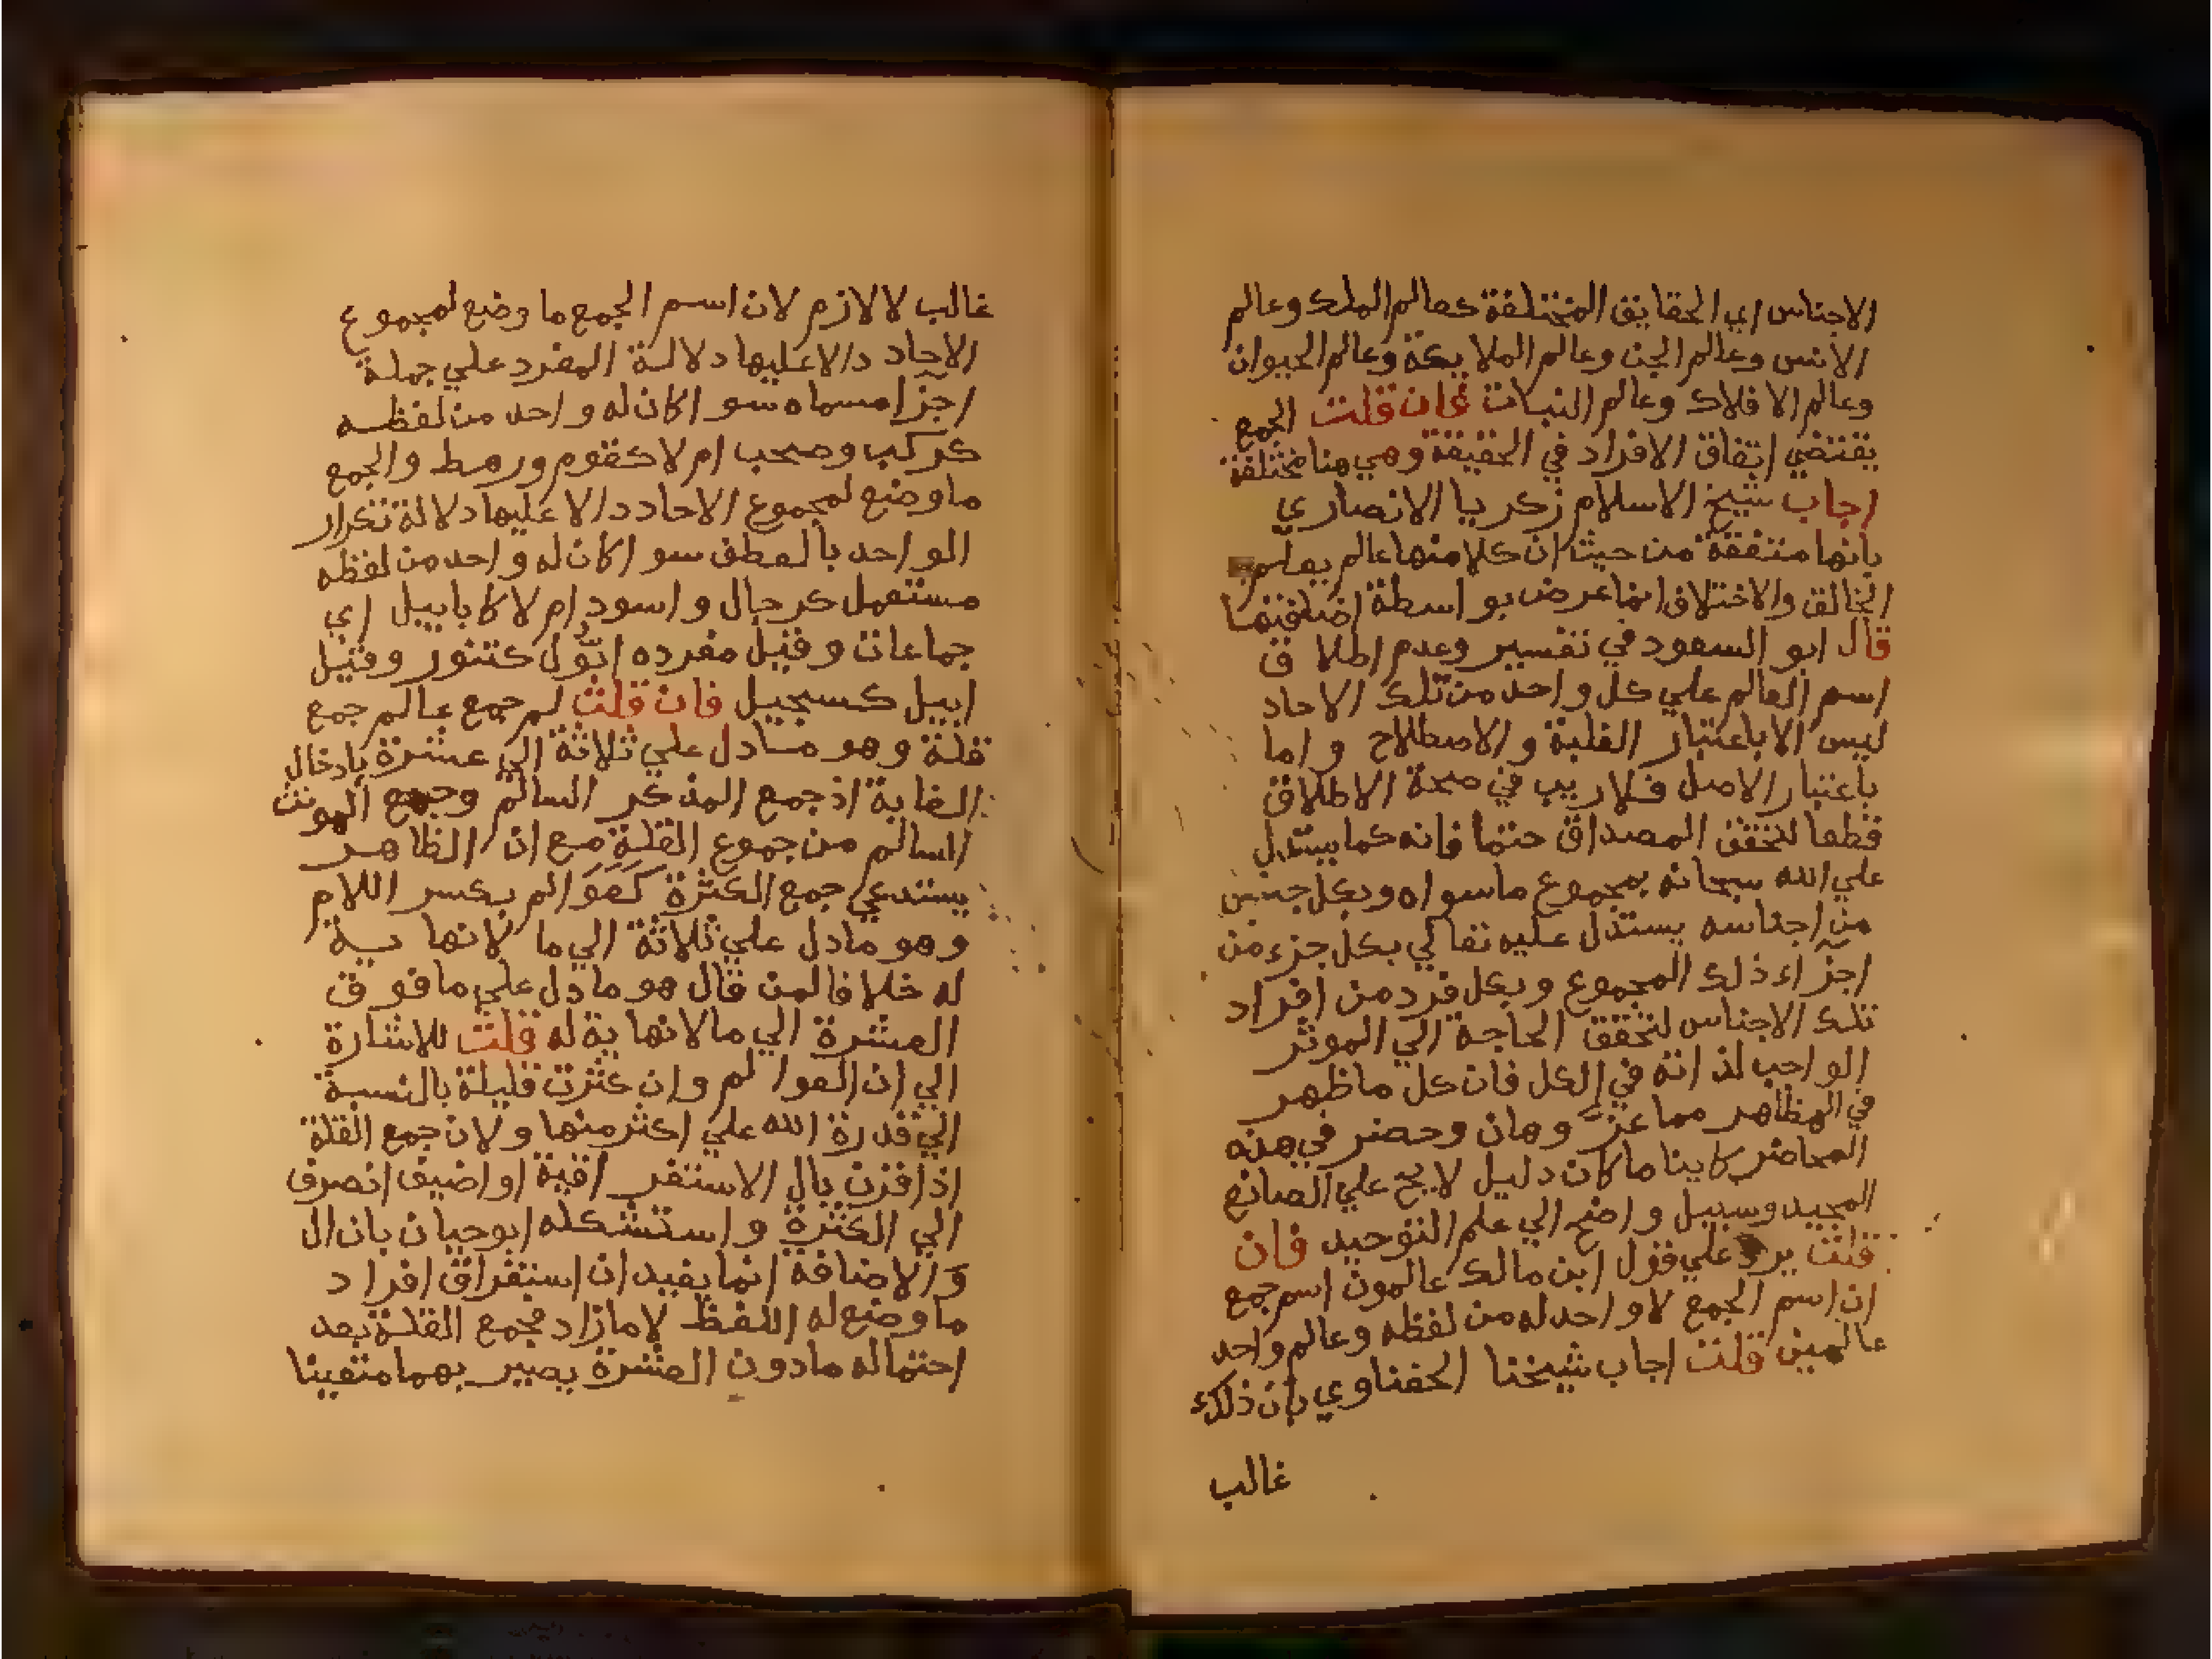 الاجناس اي الحقايق المختلفة كعالم الملك وعالم
الانس وعالم الجن وعالم الملايكة وعالم الحيوان
وعالم الافلاك وعالم النبات فان قلت الجمع
يقتضي اتفاق الافراد في الحقيقة وهي هنا مختلفة
اجاب شيخ الاسلام زكريا الانصاري
بانها متفقة من حيث ان كلا منها عالم يعلم به
الخالق والاختلاف انما عرض بواسطة اضافتها
قال ابو السعود في تفسير وعدم اطلاق
اسم العالم علي كل واحد من تلك الاحاد
ليس الا باعتبار الغلبة والاصطلاح واما
باعتبار الاصل فلا ريب في صحة الاطلاق
قطعا لتحقق المصداق حتما فانه كما يستدل
علي الله سبحانه بمجموع ما سواه وبكل جنس
من اجناسه يستدل عليه تعالي بكل جزء من
اجزاء ذلك المجموع وبكل فرد من افراد
تلك الاجناس لتحقق الحاجة الي الموثر
الواجب لذاته في الكل فان كل ما ظهر
في المظاهر مما عز وهان وحضر في هذه
المحاضر كاينا ما كان دليل لايح علي الصانع
المجيد وسبيل واضح الي علم التوحيد فان
قلت يرد علي قول ابن مالك عالمون اسم جمع
ان اسم الجمع لا واحد له من لفظه وعالم واحد
عالمين قلت اجاب شيخنا الحفناوي بان ذلك
غالب
غالب لا لازم لان اسم الجمع ما وضع لمجموع
الاحاد دالا عليها دلالة المفرد علي جملة
اجزا مسماه سوا كان له واحد من لفظه
كركب وصحب ام لا كقوم ورهط والجمع
ما وضع لمجموع الاحاد دالا عليها دلالة تكرار
الواحد بالعطف سوا كان له واحد من لفظه
مستعمل كرجال واسود ام لا كابابيل اي
جماعات وقيل مفرده ابّول كتنور وقيل
ابيل كسجيل فان قلت لم جمع عالم جمع
قلة وهو ما دل علي ثلاثة الي عشرة بادخال
الغاية اذ جمع المذكر السالم وجمع المونث
السالم من جموع القلة مع ان الظاهر
يستدعي جمع الكثرة كعوالم بكسر اللام
وهو ما دل علي ثلاثة الي ما لا نهاية
له خلافا لمن قال هو ما دل علي ما فوق
العشرة الي ما لا نهاية له قلت للاشارة
الي ان العوالم وان كثرت قليلة بالنسبة
الي قدرة الله علي اكثر منها ولان جمع القلة
اذا قرن بال الاستغراقية او اضيف انصرف
الي الكثرة واستشكله ابو حيان بان ال
والاضافة انما يفيدان استغراق افراد
ما وضع له اللفظ لا ما زاد فجمع القلة بعد
احتماله ما دون العشرة يصير بهما متعينا